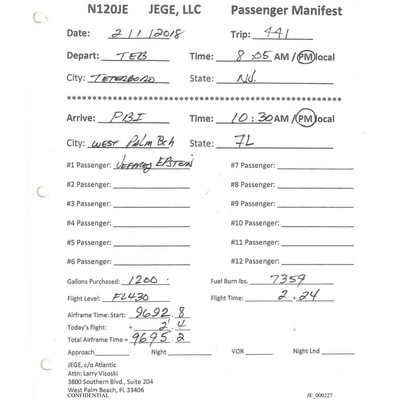 N120JE JEGE, LLC Passenger Manifest
Date: 2/1/2018 Trip: 441
Depart: TEB Time: 8:05 AM / PM local
City: TETERBORO State: NJ.
Arrive: PBI Time: 10:30 AM / PM local
City: WEST Palm Bch State: FL
#1 Passenger: JEFFREY EPSTEIN #7 Passenger:
#2 Passenger: #8 Passenger:
#3 Passenger: #9 Passenger:
#4 Passenger: #10 Passenger:
#5 Passenger: #11 Passenger:
#6 Passenger: #12 Passenger:
Gallons Purchased: 1200 Fuel Burn lbs. 7359
Flight Level: FL430 Flight Time: 2.24
Airframe Time: Start: 9692.8
Today's flight: + 2.4
Total Airframe Time = 9695.2
Approach Night VOR Night Lnd
JEGE, c/o Atlantic
Attn: Larry Visoski
3800 Southern Blvd., Suite 204
West Palm Beach, FL 33406
CONFIDENTIAL JE_000227